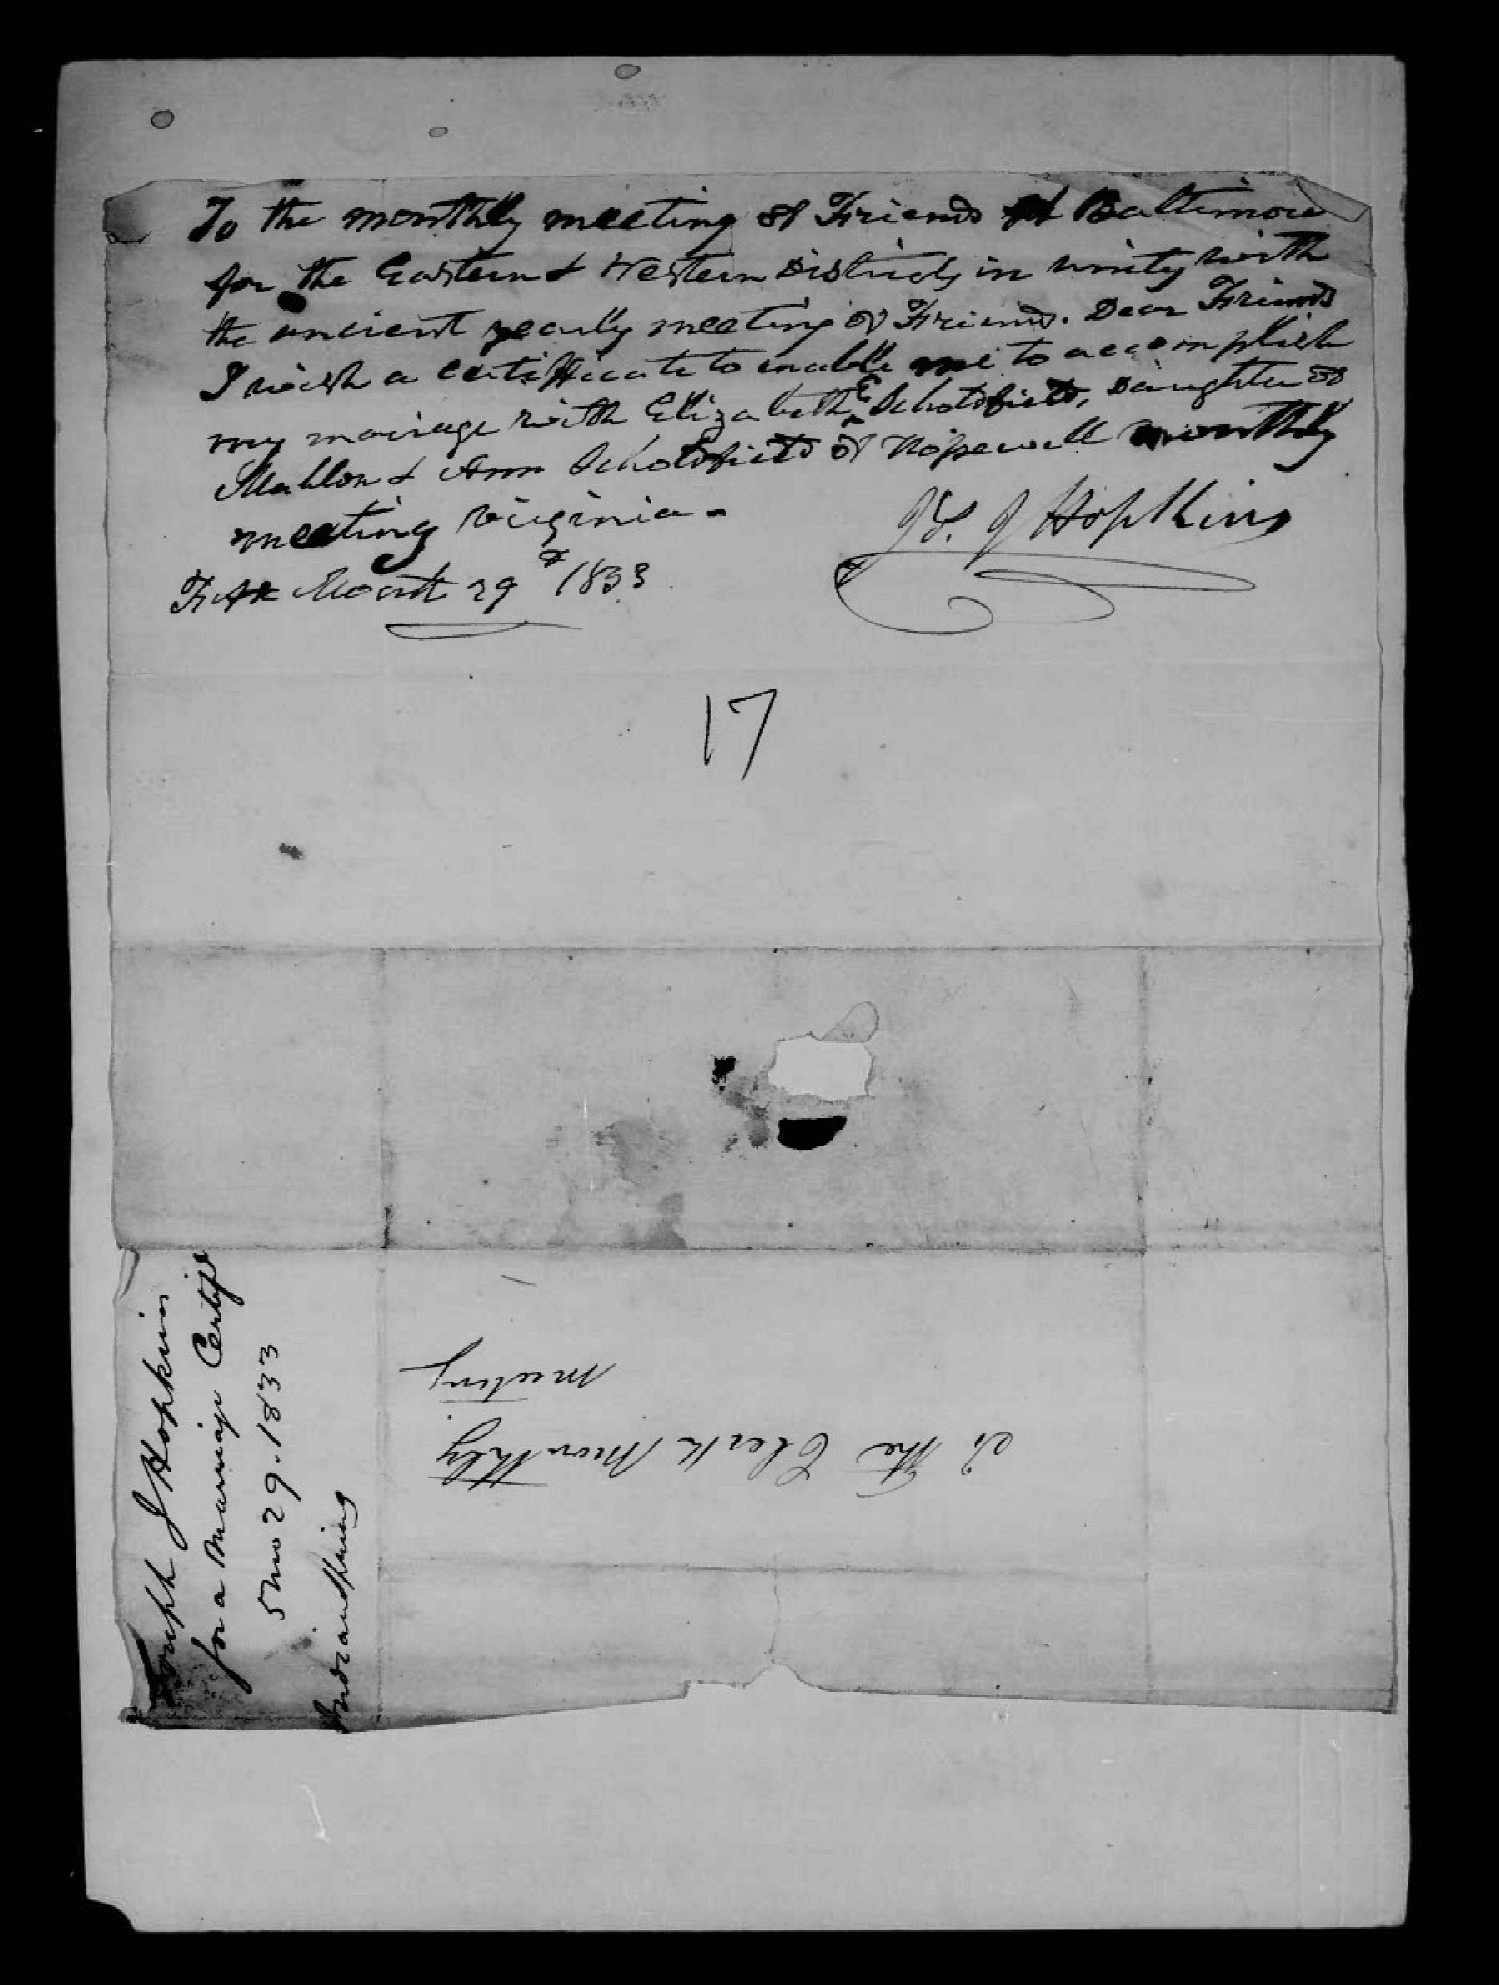 To the monthly meeting of Friends of Baltimore
for the Eastern & Western Districts in unity with
the ancient yearly meeting of Friends. Dear Friends
I wish a certifficate to enable me to accomplish
my mariage with Elizabeth E Scholdfield, Daughter of
Mahlon & Ann Scholdfield of Hopewell monthly
meeting Virginia -
Js. J Hopkins
Fifth Month 29th 1833
17
Joseph J Hopkins
for a Marriage Certife
5 mo 29. 1833
Indianspring
To the Clerk Monthly
meeting